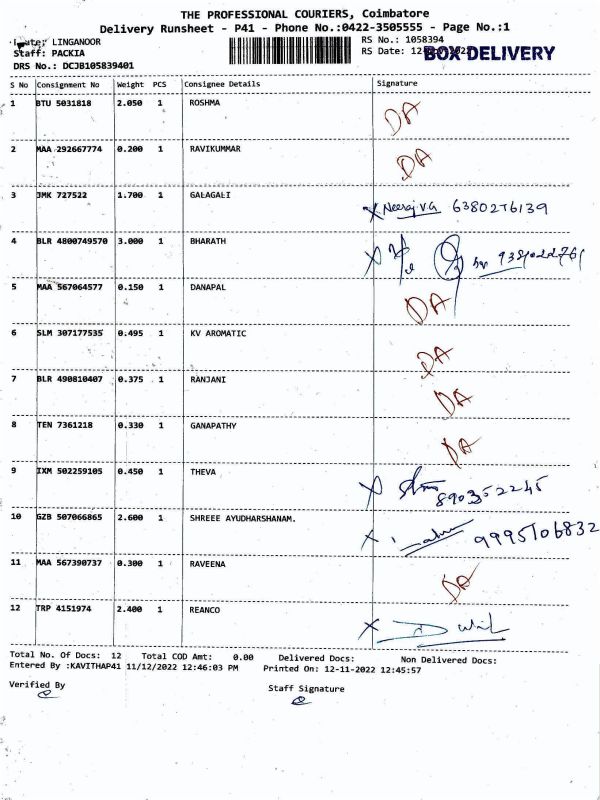 THE PROFESSIONAL COURIERS, Coimbatore
Delivery Runsheet - P41 - Phone No.:0422-3505555 - Page No.:1
LINGANOOR
RS No.: 1058394
Staff: PACKIA
RS Date: BOX DELIVERY
DRS No.: DCJB105839401
S No Consignment No Weight PCS Consignee Details Signature
1 BTU 5031818 2.050 1 ROSHMA DA
2 MAA 292667774 0.200 1 RAVIKUMMAR DA
3 JMK 727522 1.700 1 GALAGALI X Neeraj.V.G 6380276139
4 BLR 4800749570 3.000 1 BHARATH X
5 MAA 567064577 0.150 1 DANAPAL DA
6 SLM 307177535 0.495 1 KV AROMATIC DA
7 BLR 490810407 0.375 1 RANJANI DA
8 TEN 7361218 0.330 1 GANAPATHY DA
9 IXM 502259105 0.450 1 THEVA X 890352245
10 GZB 507066865 2.600 1 SHREEE AYUDHARSHANAM. X 9995106832
11 MAA 567390737 0.300 1 RAVEENA DA
12 TRP 4151974 2.400 1 REANCO X
Total No. Of Docs: 12 Total COD Amt: 0.00 Delivered Docs: Non Delivered Docs:
Entered By :KAVITHAP41 11/12/2022 12:46:03 PM Printed On: 12-11-2022 12:45:57
Verified By
Staff Signature